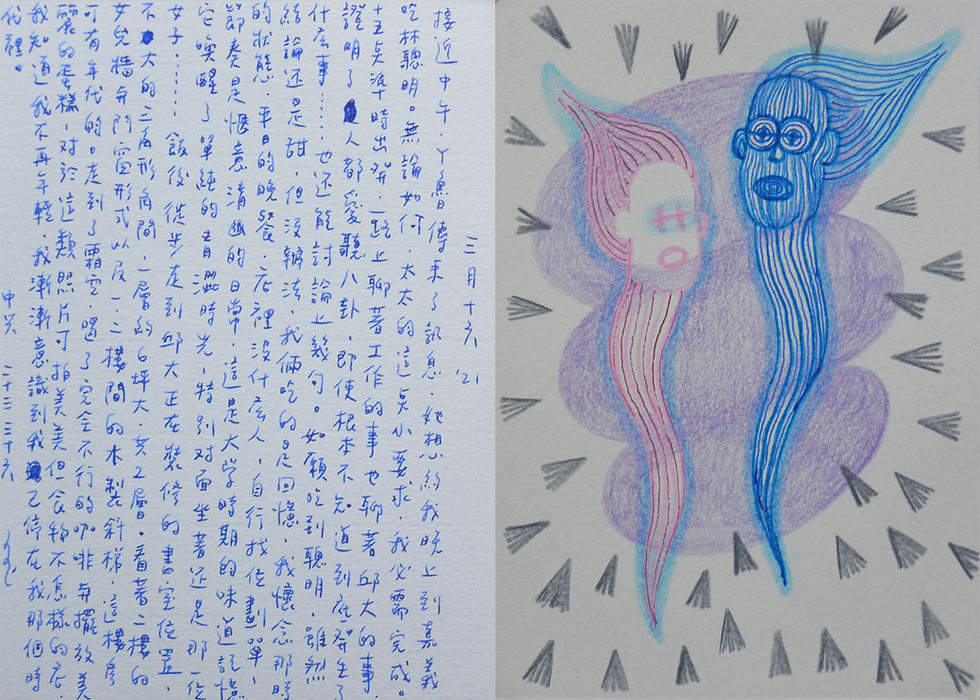 三月十六 '21
接近中午，丫魯傳來了訊息，她想約我晚上到嘉義
吃林聰明。無論如何，太太的這点小要求，我必需完成。
十五点準時出發，一路上聊著工作的事也聊著邱大的事，
證明了人都愛聽八卦，即使根本不知道到底發生了
什広事……也还能討論上幾句。如願吃到聰明，雖然
結論还是甜，但没辦法，我倆吃的是回憶，我懷念那時
的狀態，平日的晚餐，店裡没什広人，自行找位劃單，
節奏是愜意清幽的日常，這是大学時期的味道記憶
它喚醒了單純的青澀時光，特別对面坐著还是那一位
女子……飯後徒步走到邱大正在裝修的書室位置，
不大的三角形角間，一層約6坪大，共2層。看著二樓的
女兒牆与門窗形式以及一、二樓間的木製斜梯，這樓房
可有年代的。走到了霜空喝了完全不行的咖啡弁擺放美
麗的蛋糕，对於這類照片可拍美美但食物不怎樣的店，
我知道我不再年輕，我漸漸意識到我已停在我那個時
代裡。
中興 二十三 三十六